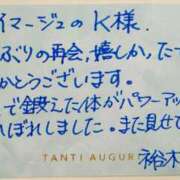 イマージュのK様.
ぶりの再会,嬉しか,たで
かとうございます。
で鍛えた体がパワーアッ
れぼれしました。また見せて
TANTI AUGUR
裕木